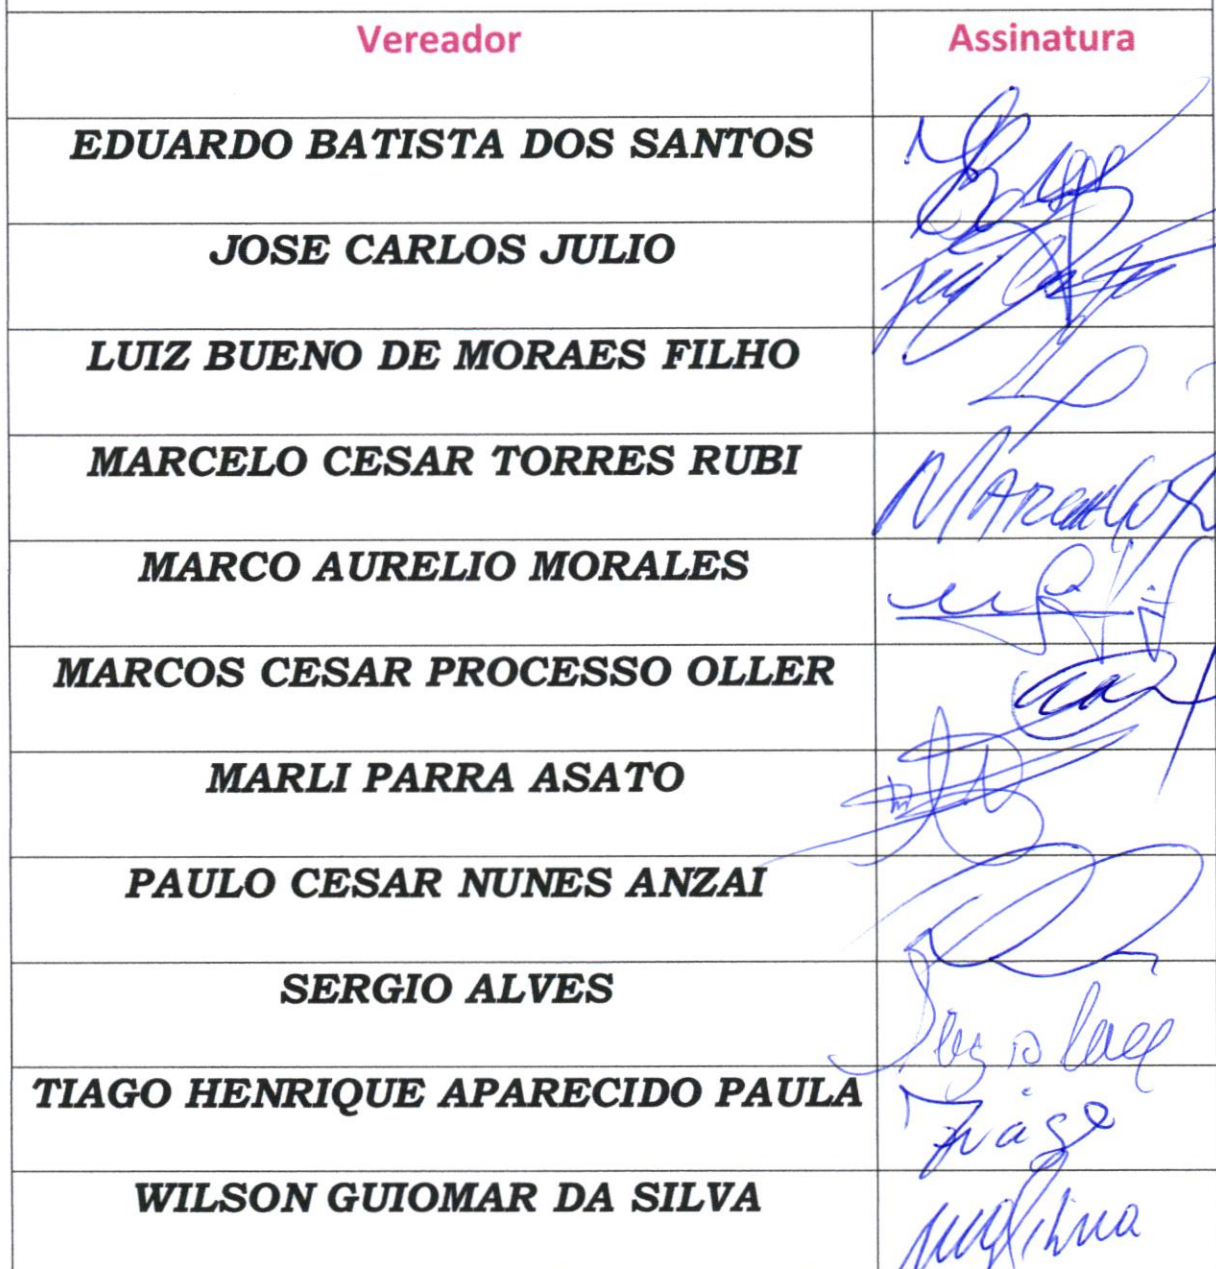 Vereador Assinatura
EDUARDO BATISTA DOS SANTOS
JOSE CARLOS JULIO
LUIZ BUENO DE MORAES FILHO
MARCELO CESAR TORRES RUBI
MARCO AURELIO MORALES
MARCOS CESAR PROCESSO OLLER
MARLI PARRA ASATO
PAULO CESAR NUNES ANZAI
SERGIO ALVES
TIAGO HENRIQUE APARECIDO PAULA Tiago
WILSON GUIOMAR DA SILVA